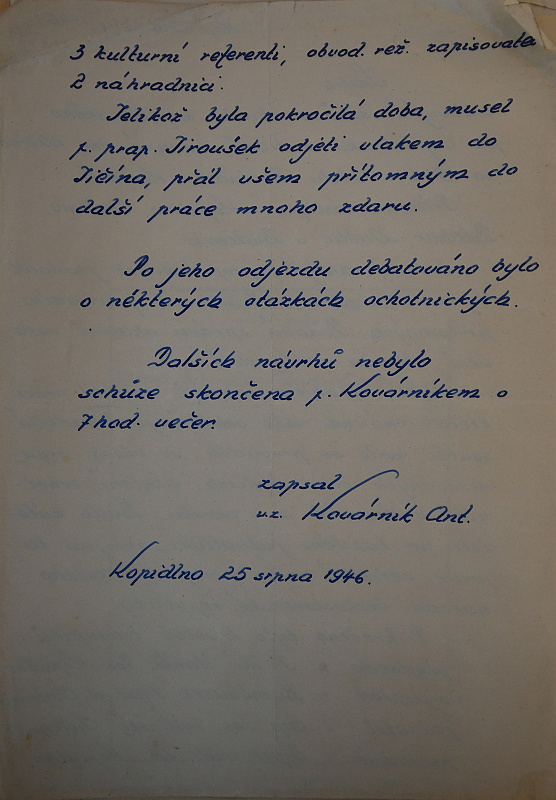 3 kulturní referenti, obvod. rež. zapisovatel
2 náhradníci.
Jelikož byla pokročilá doba, musel
p. prap. Jiroušek odjeti vlakem do
Jičína, přál všem přítomným do
další práce mnoho zdaru.
Po jeho odjezdu debatováno bylo
o některých otázkách ochotnických.
Dalších návrhů nebylo
schůze skončena p. Kovárníkem o
7 hod. večer.
zapsal
vz. Kovárník Ant.
Kopidlno 25 srpna 1946.